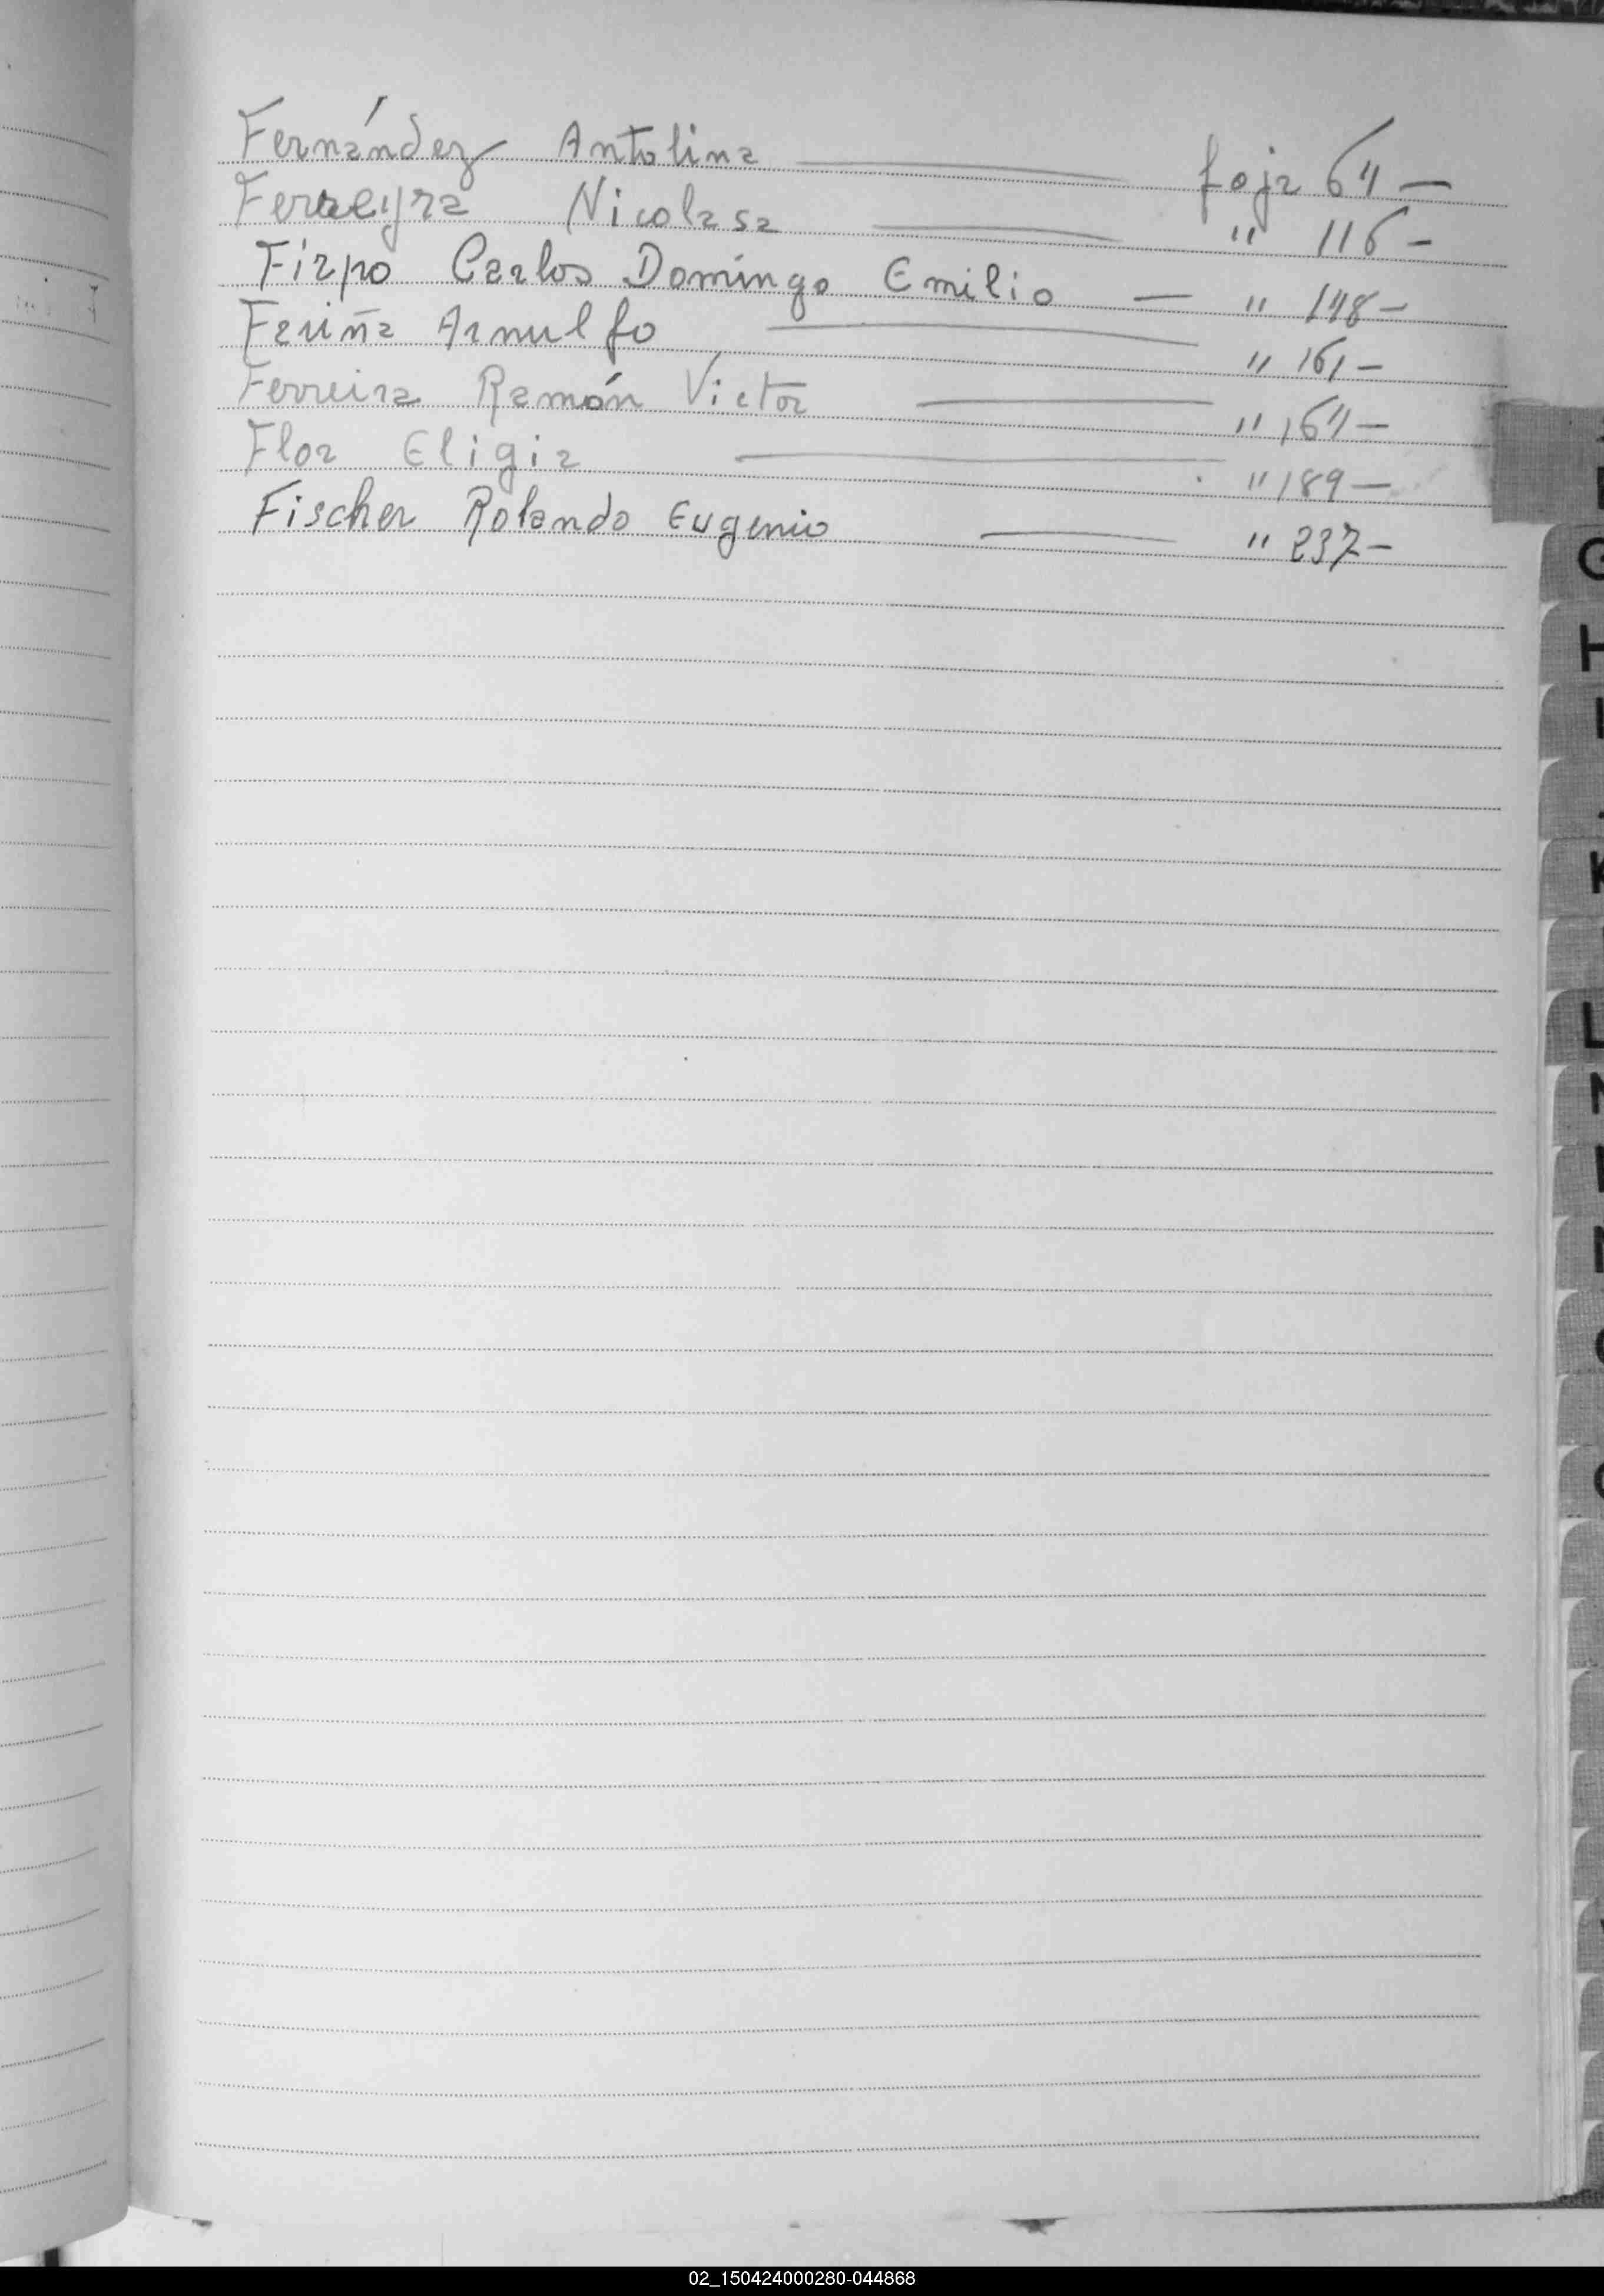 Fernández Antolina — foja 64 —
Ferreyra Nicolasa — " 116 —
Firpo Carlos Domingo Emilio — " 148 —
Fariña Arnulfo — " 161 —
Ferreira Ramón Victor — " 164 —
Flor Eligia — " 189 —
Fischer Rolando Eugenio — " 237 —
G
H
K
L
02_150424000280-044868